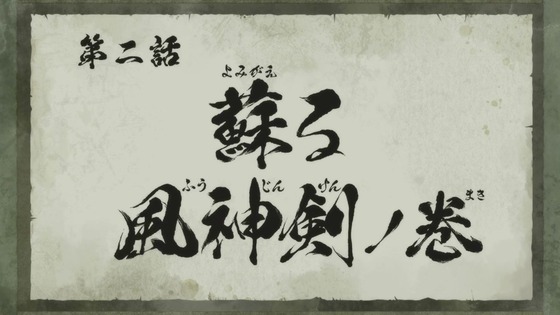 第二話
よみがえ
蘇る
ふうじんけん
風神剣ノ巻
まき